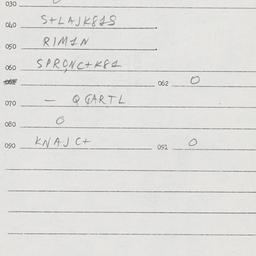 030
040 S+LAJK818
050 RIM1N
060 SPRONC+K81
062 0
070 — QGARTL
080 0
090 KNAJC+ 091 0